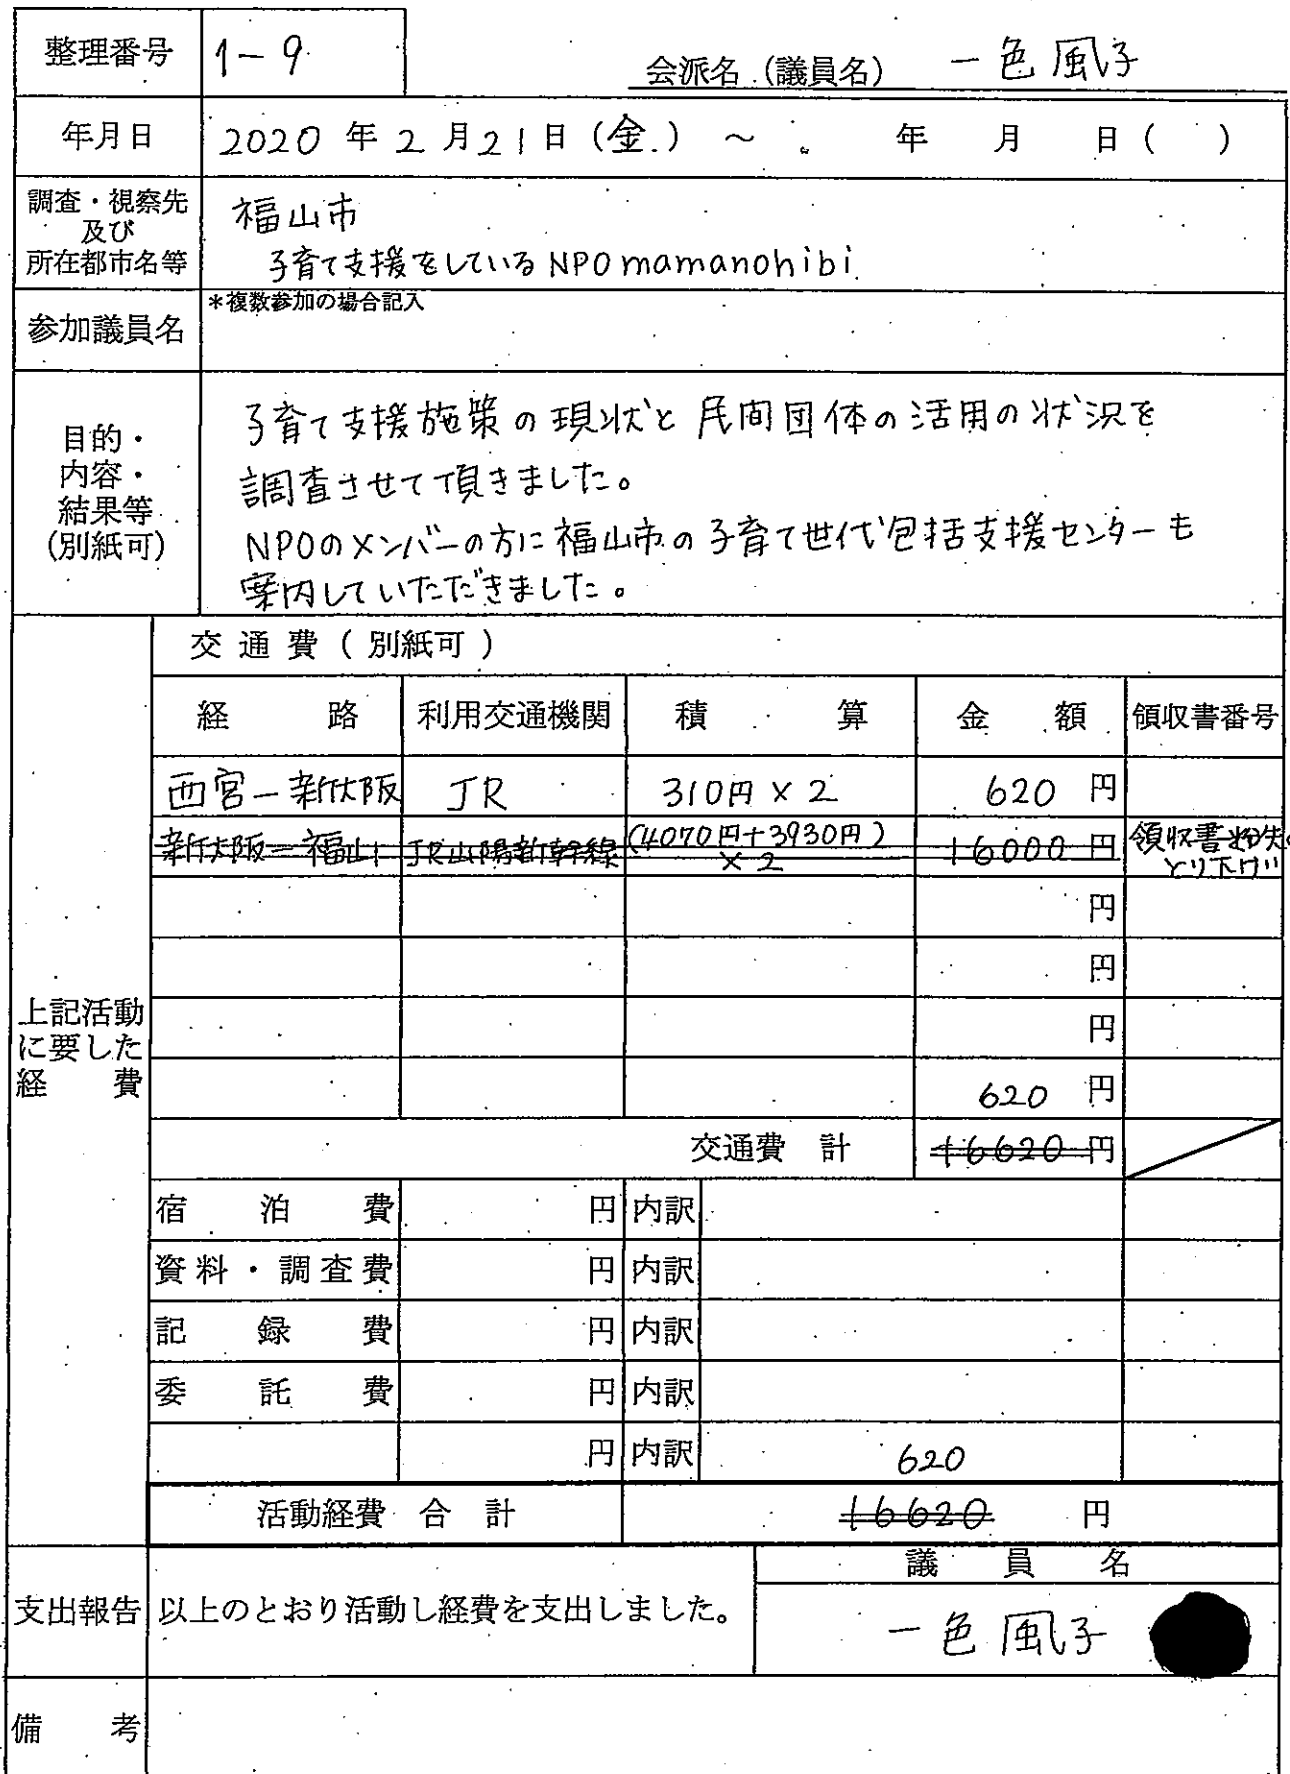 整理番号 1-9
会派名(議員名) 一色風子
年月日 2020年2月21日(金.) ～ 年 月 日( )
調査・視察先
及び
所在都市名等
福山市
子育て支援をしているNPO mamanohibi
参加議員名
*複数参加の場合記入
目的・
内容・
結果等
(別紙可)
子育て支援施策の現状と民間団体の活用の状況を
調査させて頂きました。
NPOのメンバーの方に福山市の子育て世代包括支援センターも
案内していただきました。
上記活動
に要した
経 費
交通費(別紙可)
経 路 利用交通機関 積 算 金 額 領収書番号
西宮－新大阪 JR 310円×2 620円
新大阪－福山 JR山陽新幹線 (4070円+3930円)×2 16000円 領収書紛失の
とり下げ
円
円
円
620円
交通費 計 16620円
宿泊費 円 内訳
資料・調査費 円 内訳
記録費 円 内訳
委託費 円 内訳
円 内訳 620
活動経費 合計 16620 円
支出報告 以上のとおり活動し経費を支出しました。
議員名
一色風子
備考